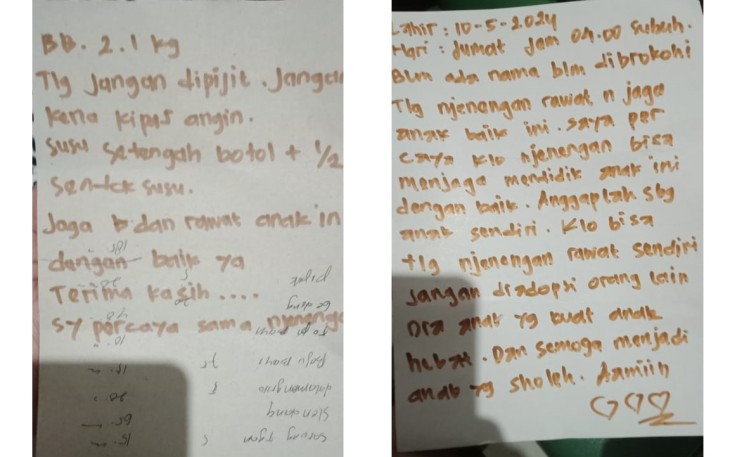 BB. 2.1 kg
Tlg Jangan dipijit. Jangan
kena kipas angin.
susu setengah botol + 1/2
sendok susu.
Jaga dan rawat anak in
dengan baik ya
Terima kasih ....
sy percaya sama njenenga
Lahir : 10-5-2024
Hari : Jumat Jam 04.00 subuh.
Blm ada nama blm dibrokohi
Tlg njenengan rawat n jaga
anak baik ini. saya per
caya klo njenengan bisa
menjaga mendidik anak ini
dengan baik. Anggaplah sbg
anak sendiri. Klo bisa
tlg njenengan rawat sendiri
Jangan diadopsi orang lain
Dia anak yg kuat anak
hebat. Dan semoga menjadi
anak yg sholeh. Aamiin